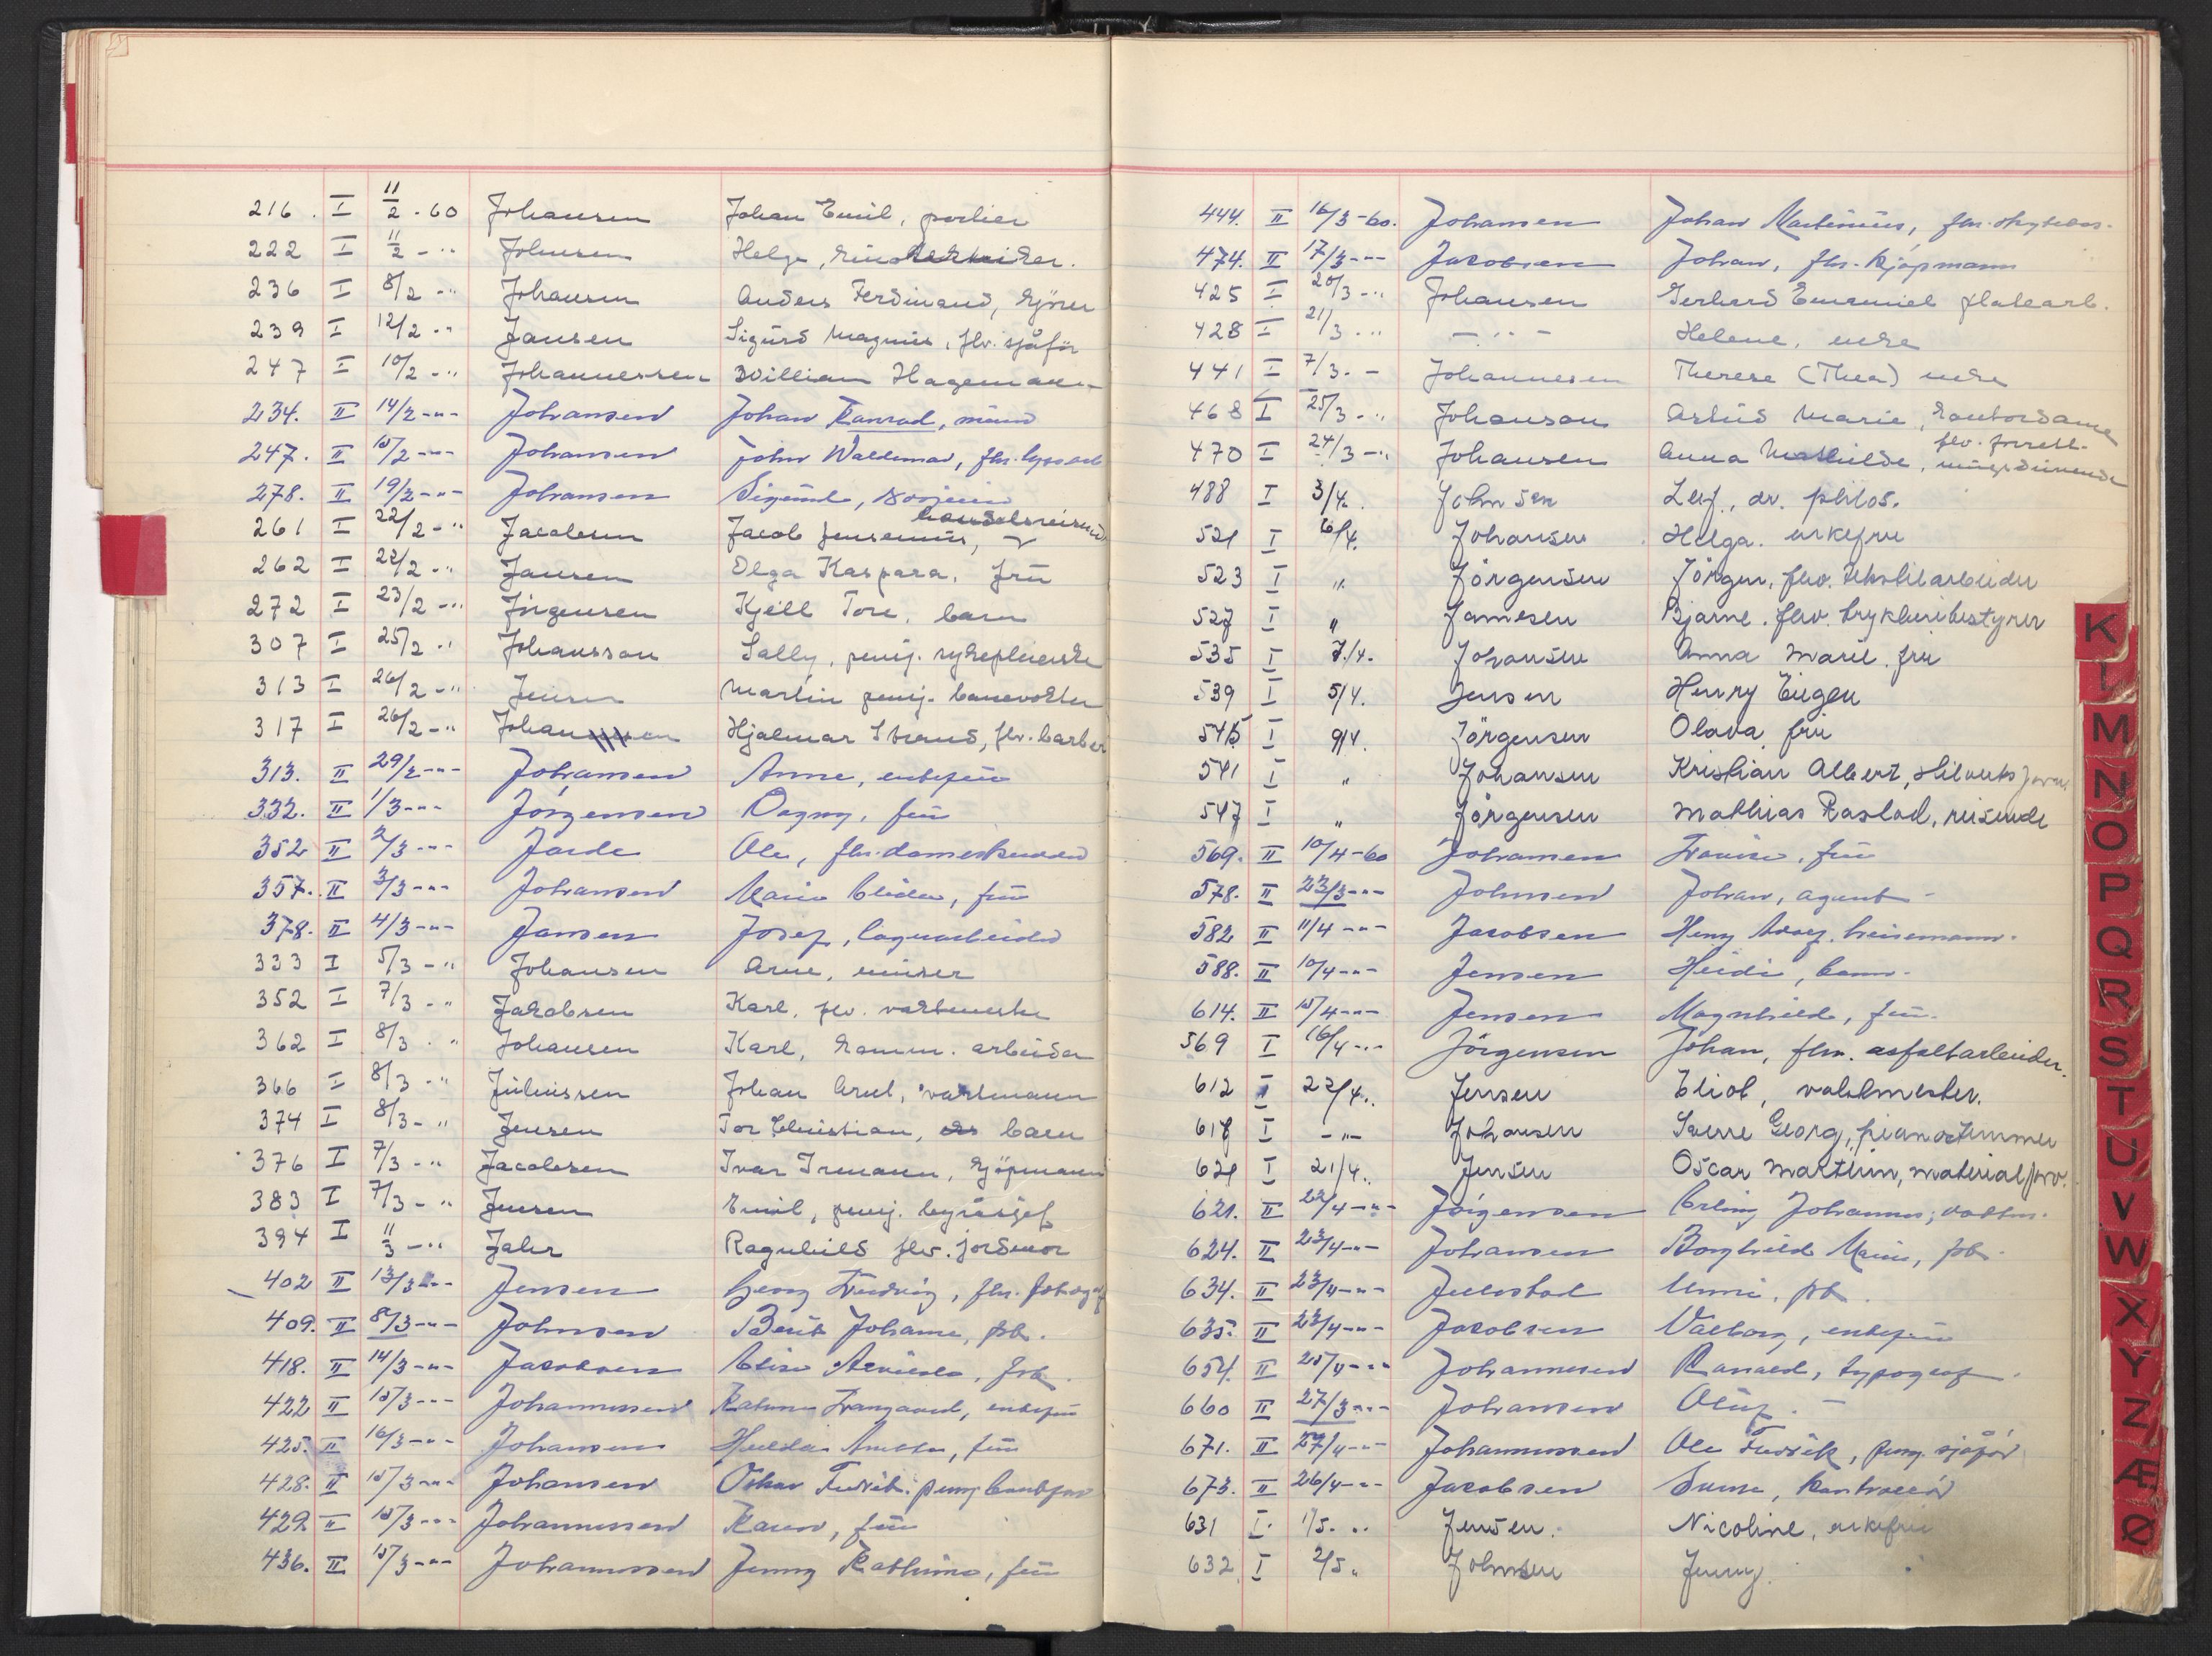 216. I 11/2-60 Johansen Johan Emil, portier
222 I 11/2 -" Johnsen Helge,
236 I 8/2 -" Johansen Anders Ferdinand, kjörer
239 I 12/2 -" Jansen Sigurd Magnus, flv. sjåför
247 I 10/2 -" Johannessen William Hagemann
234. II 14/2 -"- Johansen Johan Konrad,
247. II 15/2 -"- Johansen John Waldemar, fhv.
278. II 19/2 -"- Johansen Sigurd,
261 I 22/2 -" Jacobsen Jacob handelsreisende
262 I 22/2 -" Jansen Olga Kaspara, fru
272 I 23/2 -" Jörgensen Kjell Tore, barn
307 I 25/2 -" Johansson Sally, pensj. sykepleierske
313 I 26/2 -" Jensen Martin pensj. banevokter
317 I 26/2 -" Johansen Hjalmar Strand, flv. barber
313. II 29/2 -"- Johansen Anne, enkefru
332. II 1/3 -"- Jørgensen Dagny, fru
352 II 2/3 -"- Jorde Ole, fhv.
357. II 3/3 -"- Johansen Marie fru
378. II 4/3 -"- Jansen Josef, lagerarbeider
333 I 5/3 -" Johansen Arne, murer
352 I 7/3 -" Jakobsen Karl, flv. vaktmester
362 I 8/3 -" Johansen Karl, komm. arbeider
366 I 8/3 -" Juliussen Johan Arnt, vaktmann
374 I 8/3 -" Jensen Tor Christian, barn
376 I 7/3 -" Jacobsen Ivar Irmann, kjöpmann
383 I 7/3 -" Jensen Emil, pensj. byråsjef
394 I 11/3 -" Jahr Ragnhild flv. jordmor
402 II 13/3 -"- Jensen Georg Fredrik, fhv.
409. II 8/3 -"- Johnsen Berit Johanne, pb.
418. II 14/3 -"- Jacobsen Elise
422 II 15/3 -"- Johannessen enkefru
425. II 16/3 -"- Johansen Hulda fru
428. II 15/3 -"- Johansen Oskar Fredrik. pensj.
429. II 15/3 -"- Johannessen Karen, fru
436. II 15/3 -"- Johannessen Jenny Kathrine, fru
444. II 16/3-60. Johansen Johan Martinius, fhv.
474. II 17/3 -"- Jacobsen Johan, fhv. kjøpmann
425 I 20/3 -" Johansen Gerhard Emanuel platearb.
428 I 21/3 -" - " - Helene, enke
441 I 7/3. - Johannesen Therese (Thea) enke
468 I 25/3 -" Johanson Astrid Marie, kontordame
470 I 24/3 -" Johansen Anna Mathilde, flv. forretn.
488 I 3/4. Johnsen Leif, dr. philos.
521 I 6/4. Johansen Helga. enkefru
523 I " Jörgensen Jörgen, flv. tekstilarbeider
527 I " Jamesen Bjarne. flv. trykkeribestyrer
535 I 7/4. Johansen Anna Marie, fru
539 I 5/4. Jensen Henry Eugen
545 I 9/4. Jörgensen Olava, fru
541 I " Johansen Kristian Albert,
547 I " Jörgensen Mathias Rastad, reisende
569. II 10/4-60 Johansen fru
578. II 23/3 -"- Johnsen Johan, agent -
582 II 11/4 -"- Jacobsen Henry Adolf.
588. II 10/4 -"- Jensen Heidi, barn -
614. II 15/4 -"- Jensen Magnhild, fru.
569 I 16/4 -"- Jörgensen Johan, flv. asfaltarbeider.
612 I 22/4. Jensen Eliot, vaktmester.
618 I -"- Johansen Sverre Georg, pianostemmer
621 I 21/4. Jensen Oscar Marthin, materialforv.
621. II 22/4 -"- Jørgensen Erling Johannes,
624. II 23/4 -"- Johansen Borghild Marie, pb.
634. II 23/4 -"- Unni, pb.
635. II 23/4 -"- Jacobsen Valborg, enkefru
654. II 25/4 -"- Johannesen Ranald, typograf.
660 II 27/3 -"- Johansen Oluf. -
671. II 27/4 -"- Johannessen Ole Fredrik, pens. sjåfør
673. II 26/4 -"- Jacobsen Sverre, kontrollør
631 I 1/5. " Jensen. Nicoline, enkefru
632 I 2/5 " Johnsen Jenny.
K
L
M
N
O
P
Q
R
S
T
U
V
W
X
Y
Z
Æ
Ø